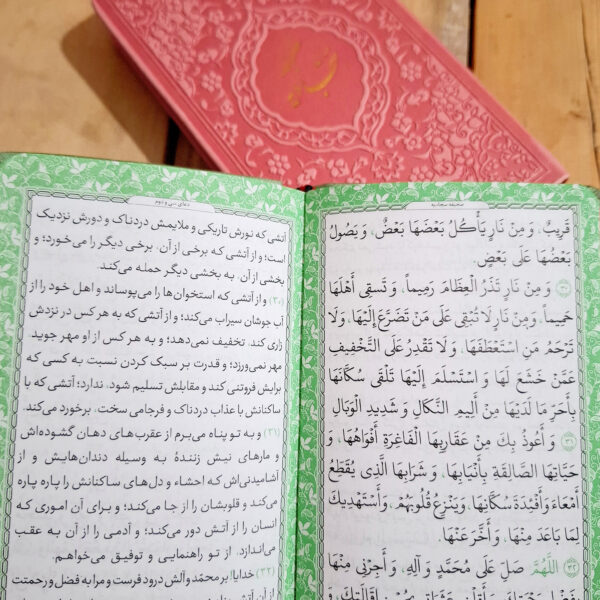 صحیفه سجادیه
قَرِیبٌ، وَ مِنْ نَارٍ یَأْکُلُ بَعْضَهَا بَعْضٌ، وَ یَصُولُ
بَعْضُهَا عَلَى بَعْضٍ.
(۳۰) وَ مِنْ نَارٍ تَذَرُ الْعِظَامَ رَمِیماً، وَ تَسْقِی أَهْلَهَا
حَمِیماً، وَمِنْ نَارٍ لَا تُبْقِی عَلَى مَنْ تَضَرَّعَ إِلَیْهَا، وَلَا
تَرْحَمُ مَنِ اسْتَعْطَفَهَا، وَ لَا تَقْدِرُ عَلَى التَّخْفِیفِ
عَمَّنْ خَشَعَ لَهَا وَ اسْتَسْلَمَ إِلَیْهَا تَلْقَى سُکَّانَهَا
بِأَحَرِّ مَا لَدَیْهَا مِنْ أَلِیمِ النَّکَالِ وَ شَدِیدِ الْوَبَالِ
(۳۱) وَ أَعُوذُ بِکَ مِنْ عَقَارِبِهَا الْفَاغِرَةِ أَفْوَاهُهَا، وَ
حَیَّاتِهَا الصَّالِقَةِ بِأَنْیَابِهَا، وَ شَرَابِهَا الَّذِی یُقَطِّعُ
أَمْعَاءَ وَ أَفْئِدَةَ سُکَّانِهَا، وَیَنْزِعُ قُلُوبَهُمْ، وَأَسْتَهْدِیکَ
لِمَا بَاعَدَ مِنْهَا، وَ أَخَّرَ عَنْهَا.
(۳۲) اللَّهُمَّ صَلِّ عَلَى مُحَمَّدٍ وَ آلِهِ، وَ أَجِرْنِی مِنْهَا
دعای سی و دوم
آتشی که نورش تاریکی و ملایمش دردناک و دورش نزدیک
است؛ و از آتشی که برخی از آن، برخی دیگر را می‌خورد؛ و
بخشی از آن، به بخشی دیگر حمله می‌کند.
(۳۰) و از آتشی که استخوان‌ها را می‌پوساند و اهل خود را از
آب جوشان سیراب می‌کند؛ و از آتشی که به هر کس در نزدش
زاری کند، تخفیف نمی‌دهد؛ و به هر کس از او مهر جوید.
مهر نمی‌ورزد؛ و قدرت بر سبک کردن نسبت به کسی که
برایش فروتنی کند و مقابلش تسلیم شود، ندارد؛ آتشی که با
ساکنانش با عذاب دردناک و فرجامی سخت، برخورد می‌کند.
(۳۱) و به تو پناه می‌برم از عقرب‌های دهان گشوده‌اش
و مارهای نیش زنندهٔ به وسیله دندان‌هایش و از
آشامیدنی‌اش که احشاء و دل‌های ساکنانش را پاره پاره
می‌کند و قلوبشان را از جا می‌کند؛ و برای آن اموری که
انسان را از آتش دور می‌کند؛ و آدمی را از آن به عقب
می‌اندازد. از تو راهنمایی و توفیق می‌خواهم.
(۳۲) خدایا! بر محمّد و آلش درود فرست و مرا به فضل و رحمتت